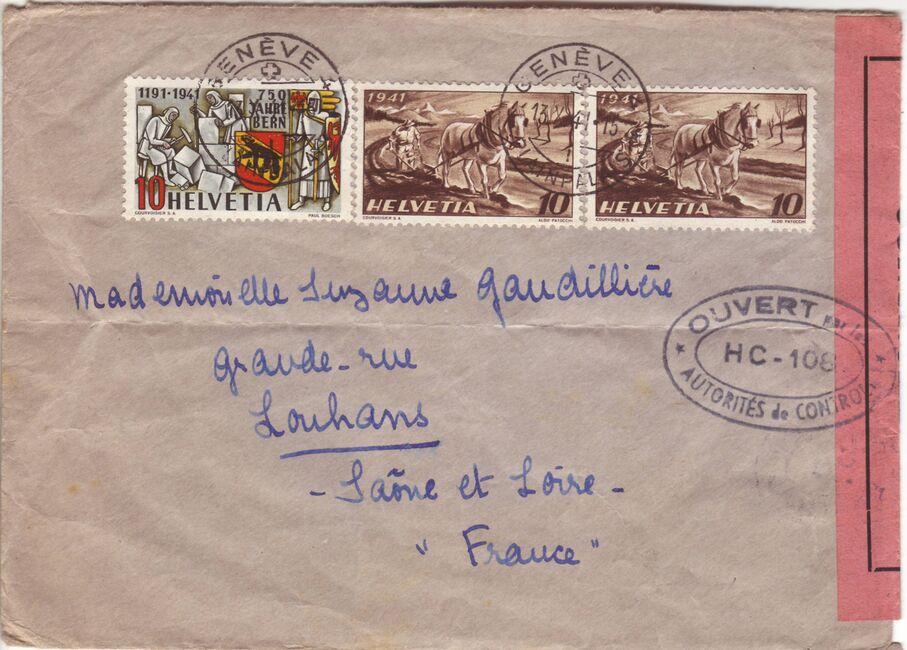 GENÈVE
1191·1941
750
JAHRE
BERN
10 HELVETIA
COURVOISIER S.A.
PAUL BOESCH
1941
HELVETIA 10
COURVOISIER S.A.
ALDO PATOCCHI
GENÈVE
1941
HELVETIA 10
COURVOISIER S.A.
ALDO PATOCCHI
Mademoiselle Suzanne Gaudillière
Grande-rue
Louhans
- Saône et Loire -
"France"
OUVERT par les
HC-108
AUTORITÉS de CONTROLE